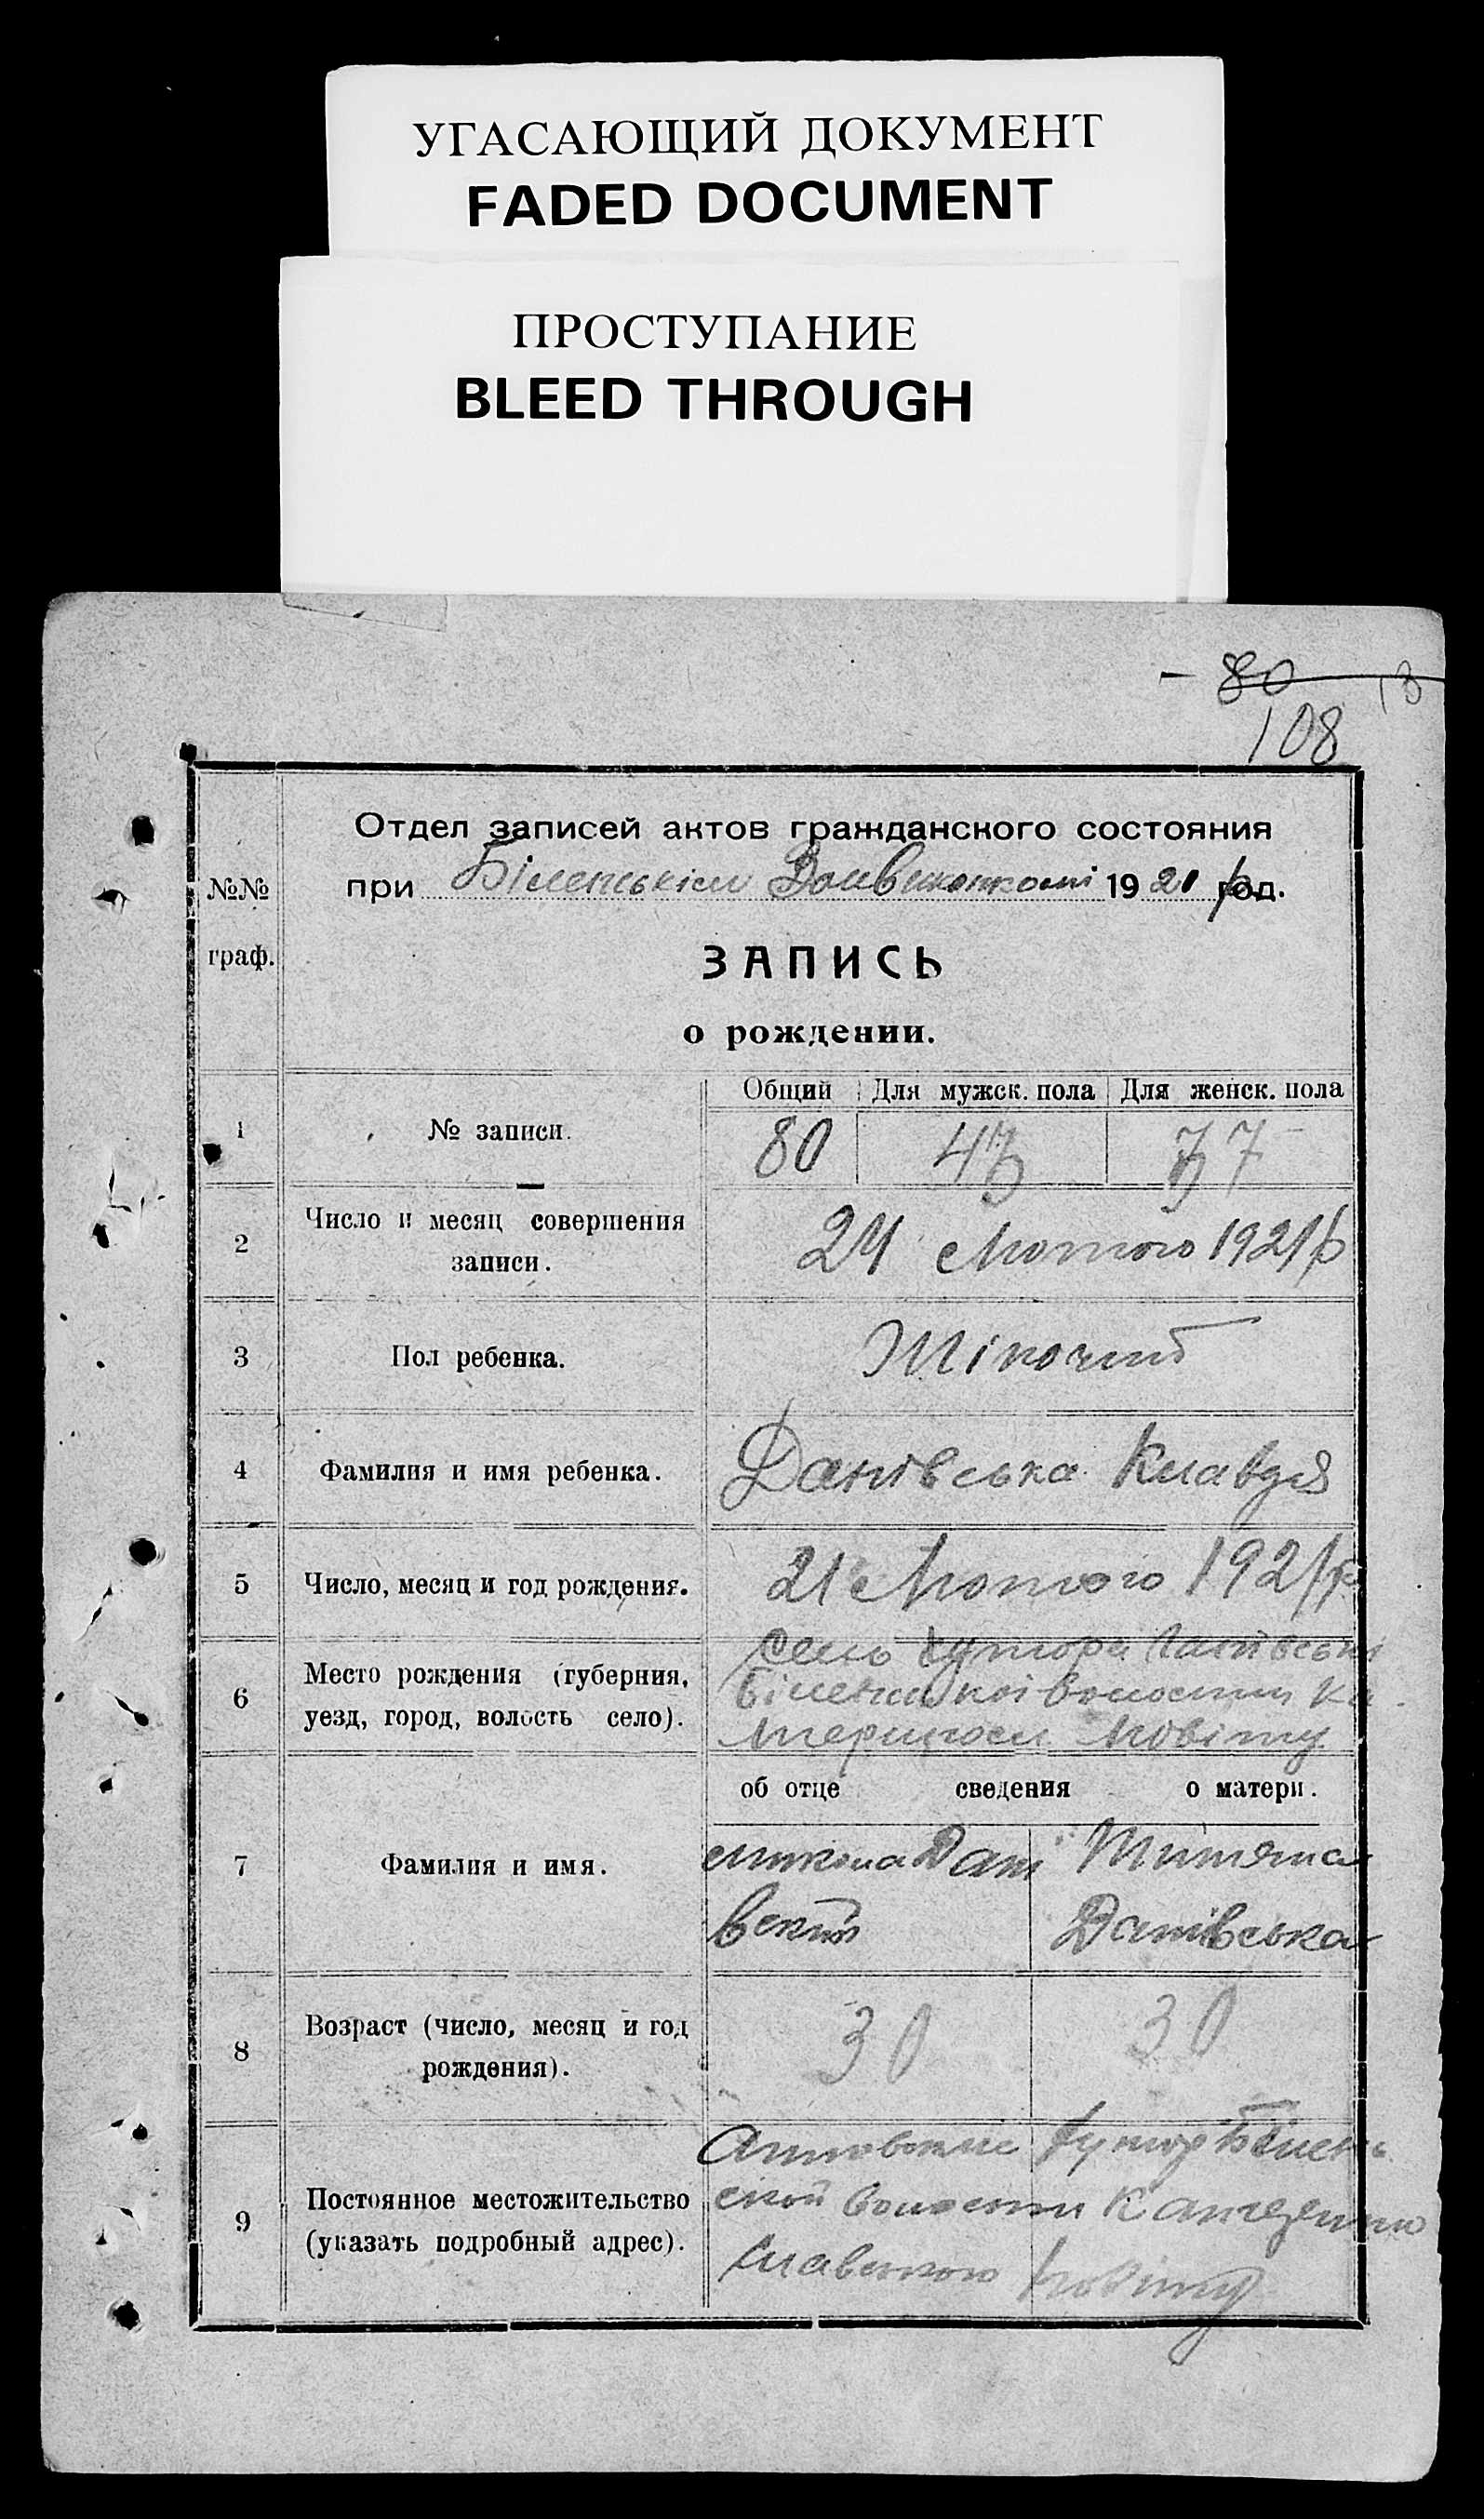 УГАСАЮЩИЙ ДОКУМЕНТ
FADED DOCUMENT
ПРОСТУПАНИЕ
BLEED THROUGH
80 13
108
Отдел записей актов гражданского состояния
№№ при Біленькім Волвиконкомі 1921 р год.
граф.
ЗАПИСЬ
о рождении.
Общий Для мужск. пола Для женск. пола
1 № записи. 80 43 37
2 Число и месяц совершения
записи. 24 Лютого 1921 р
3 Пол ребенка. Жіночий
4 Фамилия и имя ребенка. Данівська Клавдія
5 Число, месяц и год рождения. 21 Лютого 1921 р
6 Место рождения (губерния,
уезд, город, волость село).
Село хутора
волости
повіту
об отце сведения о матери.
7 Фамилия и имя.
Микола Дані Титяна
вский Данівська
8 Возраст (число, месяц и год
рождения). 30 30
9 Постоянное местожительство
(указать подробный адрес).
хутор Білень
ской волости
славського повіту